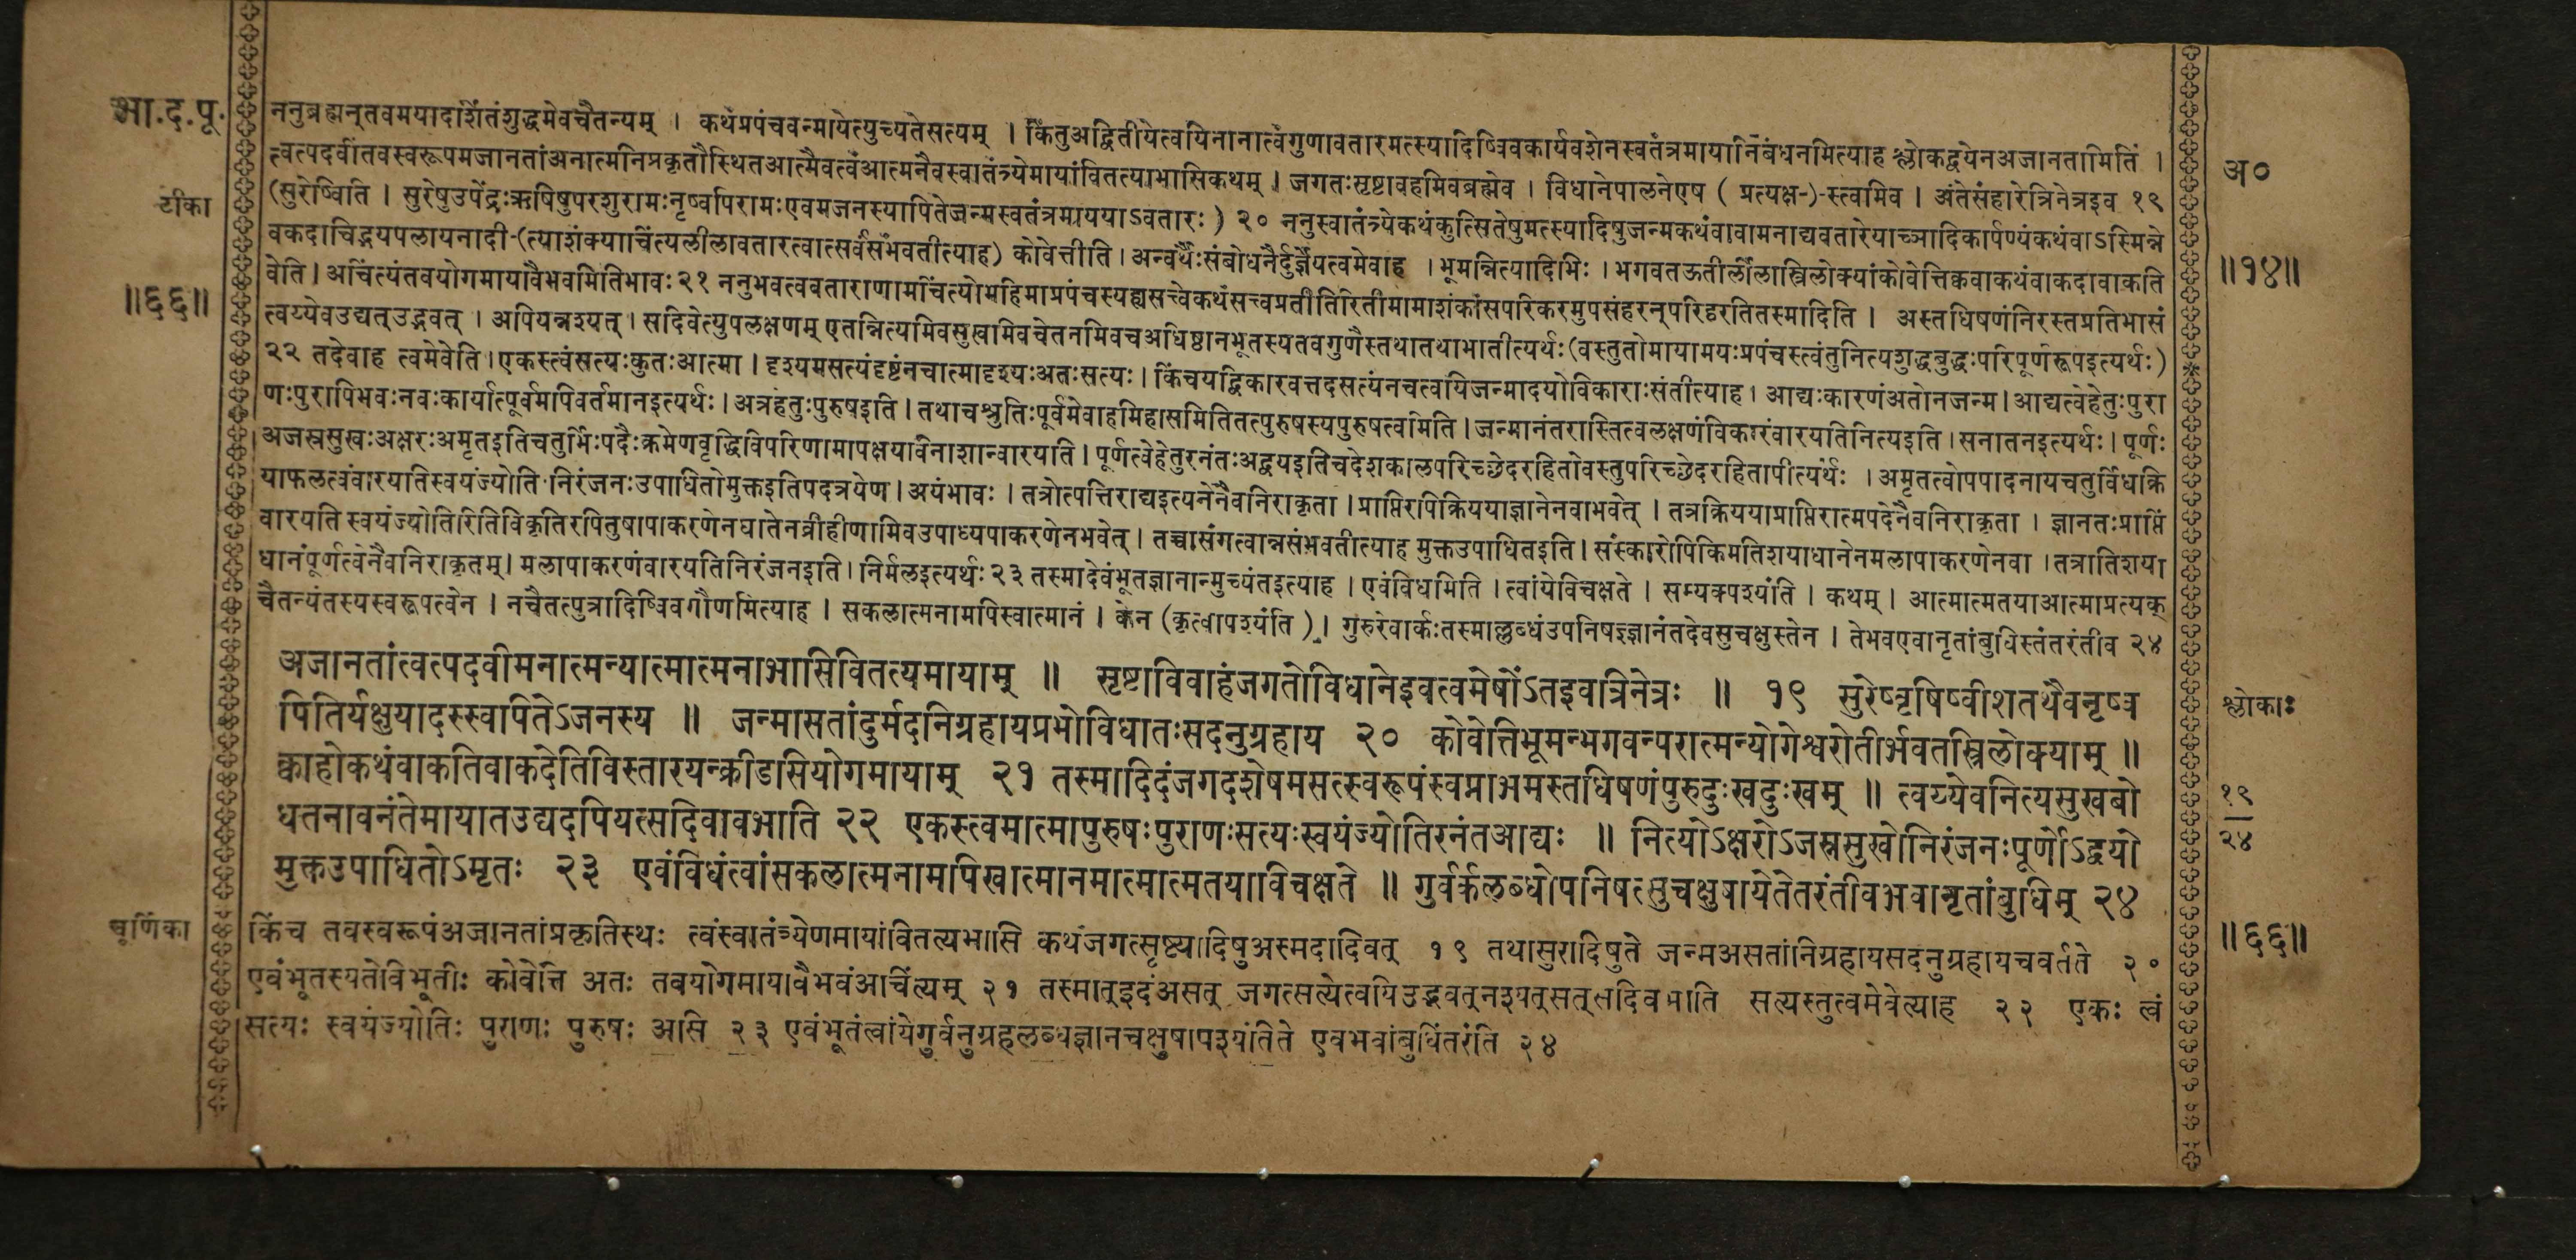 भा.द.पू. ननुब्रह्मन्तवमयादर्शितंशुद्धमेवचैतन्यम् । कथंप्रपंचवन्मायेत्युच्यतेसत्यम् । किंतुअद्वितीयेत्वयिनानात्वंगुणावतारमत्स्यादिष्विवकार्यवशेनस्वतंत्रमायानिबंधनमित्याह श्लोकद्वयेनअजानतामिति ।
त्वत्पदवींतवस्वरूपमजानतांअनात्मनिप्रकृतौस्थितआत्मैवत्वंआत्मनैवस्वातंत्र्येमायांवितत्याभासिकथम् । जगतःसृष्टावहमिवब्रह्मेव । विधानेपालनेएष ( प्रत्यक्ष-)-स्त्वमिव । अंतेसंहारेत्रिनेत्रइव १९
अ०
टीका (सुरेष्विति । सुरेषुउपेंद्रःऋषिषुपरशुरामःनृष्वपिरामःएवमजनस्यापितेजन्मस्वतंत्रमाययाऽवतारः ) २० ननुस्वातंत्र्येकथंकुत्सितेषुमत्स्यादिषुजन्मकथंवावामनाद्यवतारेयाच्ञादिकार्पण्यंकथंवाऽस्मिन्ने
वकदाचिद्भयपलायनादी-(त्याशंक्याचिंत्यलीलावतारत्वात्सर्वंसंभवतीत्याह) कोवेत्तीति । अन्वर्थैःसंबोधनैर्दुर्ज्ञेयत्वमेवाह । भूमन्नित्यादिभिः । भगवतऊतीर्लीलास्त्रिलोक्यांकोवेत्तिक्ववाकथंवाकदावाकति
॥१४॥
वेति । अचिंत्यंतवयोगमायावैभवमितिभावः २१ ननुभवत्ववताराणामचिंत्योमहिमाप्रपंचस्यह्यसत्त्वेकथंसत्त्वप्रतीतिरितीमामाशंकांसपरिकरमुपसंहरन्परिहरतितस्मादिति । अस्तधिषणंनिरस्तप्रतिभासं
॥६६॥ त्वय्येवउद्यत्उद्भवत् । अपियन्नश्यत् । सदिवेत्युपलक्षणम् एतन्नित्यमिवसुखमिवचेतनमिवचअधिष्ठानभूतस्यतवगुणैस्तथातथाभातीत्यर्थः(वस्तुतोमायामयःप्रपंचस्त्वंतुनित्यशुद्धबुद्धःपरिपूर्णरूपइत्यर्थः)
२२ तदेवाह त्वमेवेति । एकस्त्वंसत्यःकुतःआत्मा । दृश्यमसत्यंदृष्टंनचात्मादृश्यःअतःसत्यः । किंचयद्विकारवत्तदसत्यंनचत्वयिजन्मादयोविकाराःसंतीत्याह । आद्यःकारणंअतोनजन्म । आद्यत्वेहेतुःपुरा
णःपुरापिभवःनवःकार्यात्पूर्वमपिवर्तमानइत्यर्थः । अत्रहेतुःपुरुषइति । तथाचश्रुतिःपूर्वमेवाहमिहासमितितत्पुरुषस्यपुरुषत्वमिति । जन्मानंतरास्तित्वलक्षणंविकारंवारयतिनित्यइति । सनातनइत्यर्थः । पूर्णः
अजस्रसुखःअक्षरःअमृतइतिचतुर्भिःपदैःक्रमेणवृद्धिविपरिणामापक्षयविनाशान्वारयति । पूर्णत्वेहेतुरनंतःअद्वयइतिचदेशकालपरिच्छेदरहितोवस्तुपरिच्छेदरहितापीत्यर्थः । अमृतत्वोपपादनायचतुर्विधक्रि
याफलत्वंवारयतिस्वयंज्योति निरंजनःउपाधितोमुक्तइतिपदत्रयेण । अयंभावः । तत्रोत्पत्तिराद्यइत्यनेनैवनिराकृता । प्राप्तिरपिक्रिययाज्ञानेनवाभवेत् । तत्रक्रिययाप्राप्तिरात्मपदेनैवनिराकृता । ज्ञानतःप्राप्तिं
वारयति स्वयंज्योतिरितिविकृतिरपितुषापाकरणेनघातेनव्रीहीणामिवउपाध्यपाकरणेनभवेत् । तच्चासंगत्वान्नसंभवतीत्याह मुक्तउपाधितइति । संस्कारोपिकिमतिशयाधानेनमलापाकरणेनवा । तत्रातिशया
धानंपूर्णत्वेनैवनिराकृतम् । मलापाकरणंवारयतिनिरंजनइति । निर्मलइत्यर्थः २३ तस्मादेवंभूतज्ञानान्मुच्यंतइत्याह । एवंविधमिति । त्वांयेविचक्षते । सम्यक्पश्यंति । कथम् । आत्मात्मतयाआत्माप्रत्यक्
चैतन्यंतस्यस्वरूपत्वेन । नचैतत्पुत्रादिष्विवगौणमित्याह । सकलात्मनामपिस्वात्मानं । केन (कृत्वापश्यंति ) । गुरुरेवार्कःतस्माल्लब्धंउपनिषज्ज्ञानंतदेवसुचक्षुस्तेन । तेभवएवानृतांबुधिस्तंतरंतीव २४
अजानतांत्वत्पदवीमनात्मन्यात्मात्मनाभासिवितत्यमायाम् ॥ सृष्टाविवाहंजगतोविधानेइवत्वमेषोंऽतइवत्रिनेत्रः ॥ १९ सुरेष्वृषिष्वीशतथैवनृष्व
श्लोकाः
पितिर्यक्षुयादस्स्वपितेऽजनस्य ॥ जन्मासतांदुर्मदनिग्रहायप्रभोविधातःसदनुग्रहाय २० कोवेत्तिभूमन्भगवन्परात्मन्योगेश्वरोतीर्भवतस्त्रिलोक्याम् ॥
क्वाहोकथंवाकतिवाकदेतिविस्तारयन्क्रीडसियोगमायाम् २१ तस्मादिदंजगदशेषमसत्स्वरूपंस्वप्नाभमस्तधिषणंपुरुदुःखदुःखम् ॥ त्वय्येवनित्यसुखबो
१९
धतनावनंतेमायातउद्यदपियत्सदिवावभाति २२ एकस्त्वमात्मापुरुषःपुराणःसत्यःस्वयंज्योतिरनंतआद्यः ॥ नित्योऽक्षरोऽजस्रसुखोनिरंजनःपूर्णोऽद्वयो
२४
मुक्तउपाधितोऽमृतः २३ एवंविधंत्वांसकलात्मनामपिस्वात्मानमात्मात्मतयाविचक्षते ॥ गुर्वर्कलब्धोपनिषत्सुचक्षुषायेतेतरंतीवभवानृतांबुधिम् २४
चूर्णिका किंच तवस्वरूपंअजानतांप्रकृतिस्थः त्वंस्वातंत्र्येणमायांवितत्यभासि कथंजगत्सृष्ट्यादिषुअस्मदादिवत् १९ तथासुरादिषुते जन्मअसतांनिग्रहायसदनुग्रहायचवर्तते २०
॥६६॥
एवंभूतस्यतेविभूतीः कोवेत्ति अतः तवयोगमायावैभवंअचिंत्यम् २१ तस्मात्इदंअसत् जगत्सत्येत्वयिउद्भवत्नश्यत्सत्सदिवभाति सत्यस्तुत्वमेवेत्याह २२ एकः त्वं
सत्यः स्वयंज्योतिः पुराणः पुरुषः असि २३ एवंभूतंत्वांयेगुर्वनुग्रहलब्धज्ञानचक्षुषापश्यंतिते एवभवांबुधिंतरंति २४